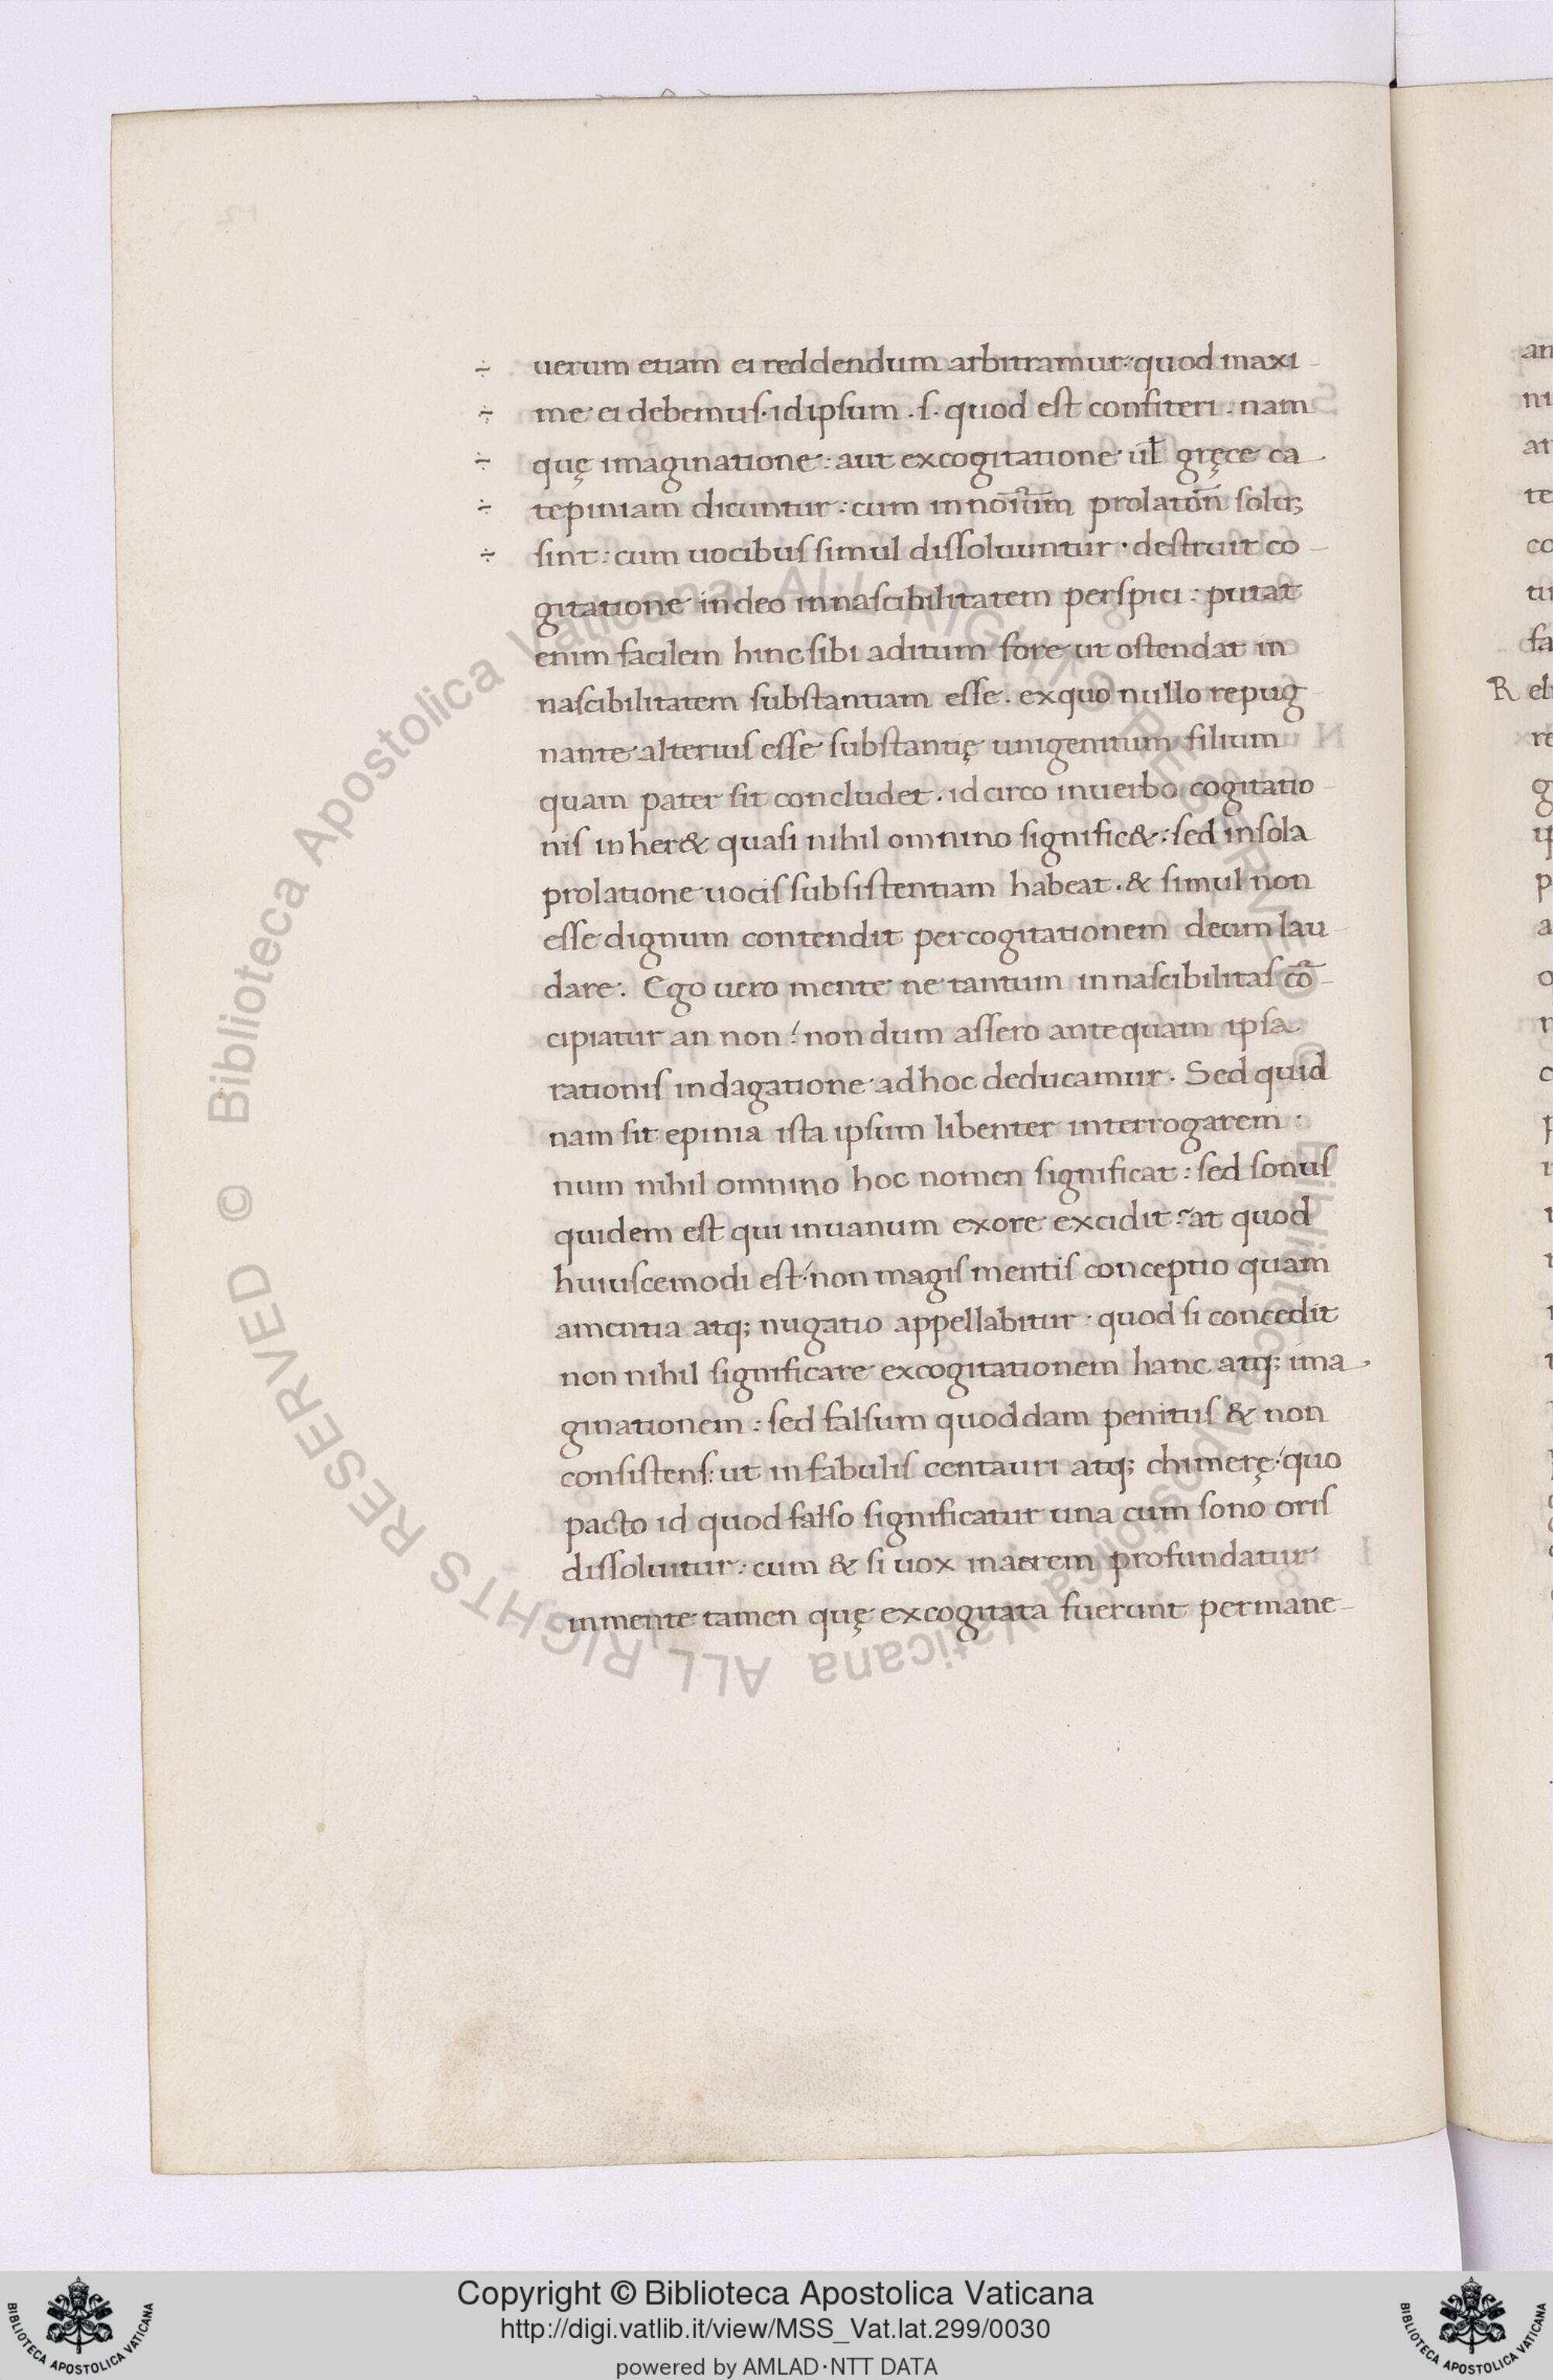 ÷ uerum etiam ei reddendum arbitramur: quod maxi-
÷ me ei debemus. id ipsum .s. quod est confiteri. nam
÷ quę imaginatione: aut excogitatione ul̄ gręce ca-
÷ tepiniam dicuntur: cum in noīum prolatōn̄ solū;
÷ sint: cum uocibus simul dissoluuntur. destruit co-
gitatione in deo innascibilitatem perspici: putat
enim facilem hinc sibi aditum fore ut ostendat in
nascibilitatem substantiam esse. ex quo nullo repug-
nante alterius esse substantię unigenitum filium
quam pater sit concludet. idcirco in uerbo cogitatio-
nis inher& quasi nihil omnino signific&: sed in sola
prolatione uocis subsistentiam habeat. & simul non
esse dignum contendit per cogitationem deum lau-
dare. Ego uero mente ne tantum innascibilitas cō-
cipiatur an non: nondum assero ante quam ipsa
rationis indagatione ad hoc deducamur. Sed quid
nam sit epinia ista ipsum libenter interrogarem:
num nihil omnino hoc nomen significat: sed sonus
quidem est qui in uanum ex ore excidit: at quod
huiuscemodi est: non magis mentis conceptio quam
amentia atq; nugatio appellabitur. quod si concedit
non nihil significare excogitationem hanc atq; ima-
ginationem: sed falsum quoddam penitus & non
consistens: ut in fabulis centauri atq; chimerę: quo
pacto id quod falso significatur una cum sono oris
dissoluitur: cum & si uox in aerem profundatur
in mente tamen quę excogitata fuerunt permane-
an
ni
at
te
co
tu
fa
R el
re
g
ip
p
a
o
Biblioteca Apostolica Vaticana ALL RIGHTS RESERVED ©
Biblioteca Apostolica Vaticana ALL RIGHTS RESERVED ©
Copyright © Biblioteca Apostolica Vaticana
http://digi.vatlib.it/view/MSS_Vat.lat.299/0030
powered by AMLAD·NTT DATA
BIBLIOTECA APOSTOLICA VATICANA
BIBLIOTECA APOSTOLICA VATICANA